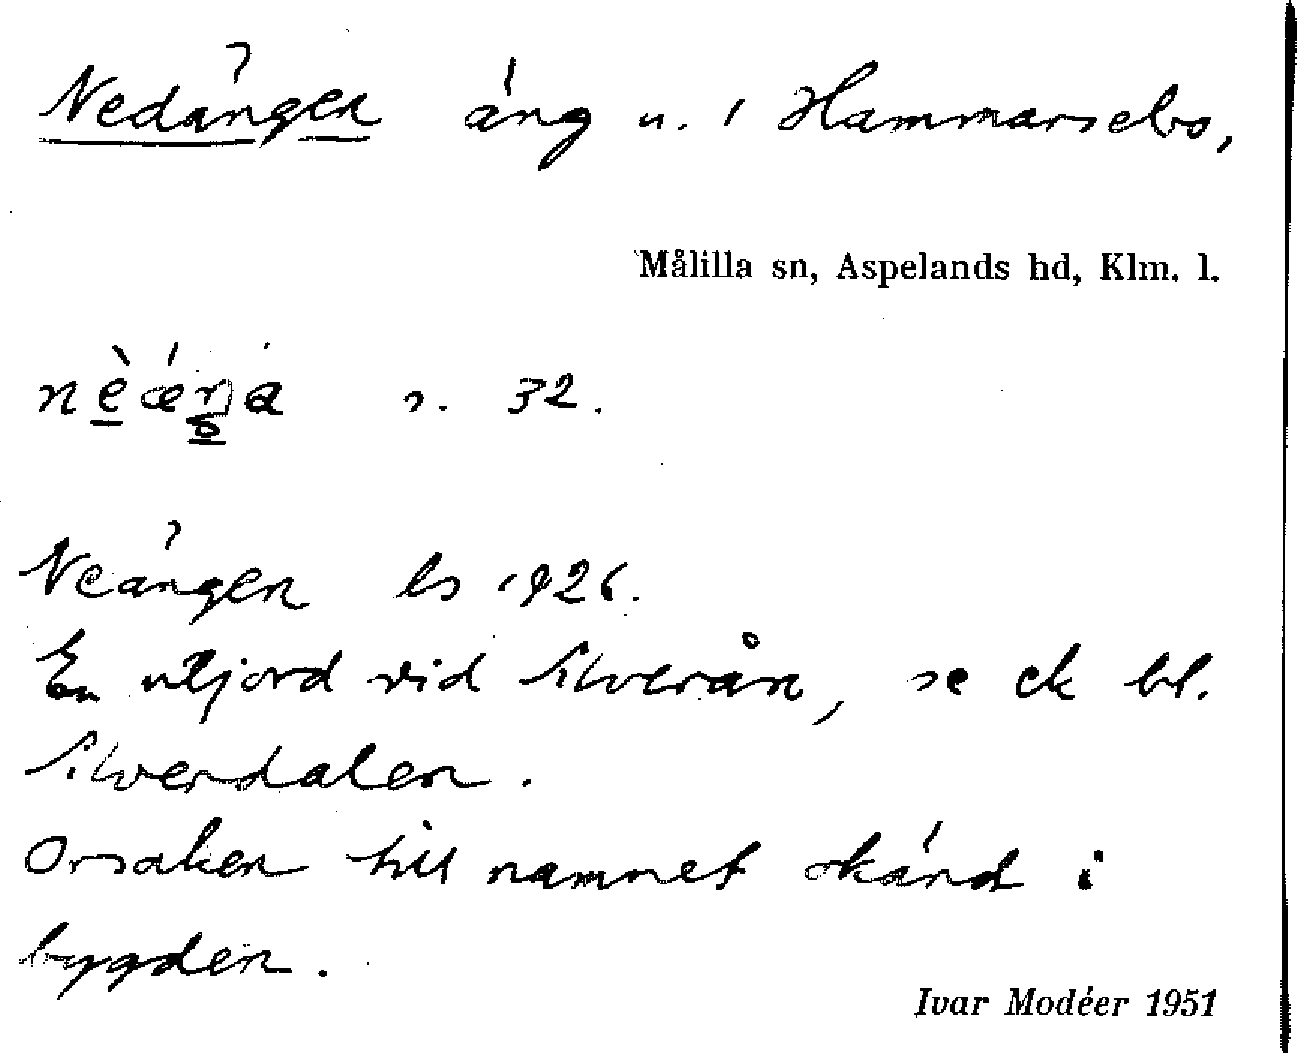 Nedängen äng u. i Hammarsebo,
Målilla sn, Aspelands hd, Klm. l.
s. 32.
Neängen ls 1926.
En utjord vid Silverån, se ek bl.
Silverdalen.
Orsaken till namnet okänd i
bygden.
Ivar Modéer 1951